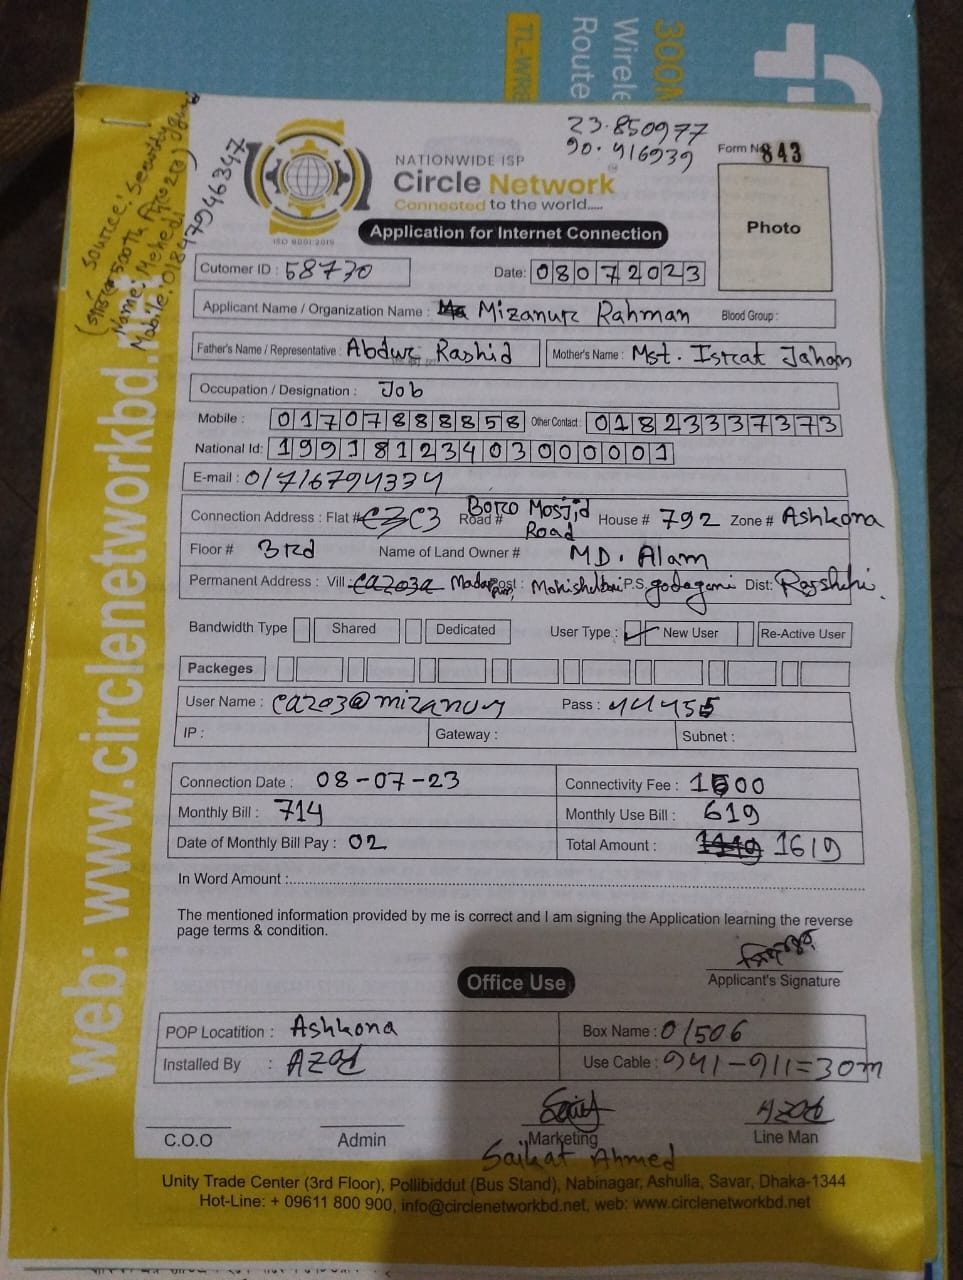 300M
Wirele
Route
TL-WR8
23.850977
90.416939
Form No 843
NATIONWIDE ISP
Circle Network
Connected to the world.....
ISO 9001:2015
Application for Internet Connection
Photo
Source: Security
Name: Mehedi
Mobile: 01897946347
web: www.circlenetworkbd.net
Cutomer ID : 58770
Date: 08072023
Applicant Name / Organization Name : Mizanur Rahman Blood Group :
Father's Name / Representative : Abdur Rashid Mother's Name : Mst. Israt Jahan
Occupation / Designation : Job
Mobile : 01707888858 Other Contact : 01823337373
National Id: 19918123403000001
E-mail : 01716794334
Connection Address : Flat # C3 Road # Boro Mosjid Road House # 792 Zone # Ashkona
Floor # 3rd Name of Land Owner # MD. Alam
Permanent Address : Vill : Post : P.S, godagari Dist: Rajshahi.
Bandwidth Type Shared Dedicated User Type : New User Re-Active User
Packeges
User Name : ca203@mizanur Pass : 44455
IP : Gateway : Subnet :
Connection Date : 08-07-23 Connectivity Fee : 1000
Monthly Bill : 714 Monthly Use Bill : 619
Date of Monthly Bill Pay : 02 Total Amount : 1619
In Word Amount :
The mentioned information provided by me is correct and I am signing the Application learning the reverse
page terms & condition.
Applicant's Signature
Office Use
POP Locatition : Ashkona Box Name : 01506
Installed By : Azad Use Cable : 941-911=30m
Azad
C.O.O Admin Marketing Line Man
Saikat Ahmed
Unity Trade Center (3rd Floor), Pollibiddut (Bus Stand), Nabinagar, Ashulia, Savar, Dhaka-1344
Hot-Line: + 09611 800 900, info@circlenetworkbd.net, web: www.circlenetworkbd.net